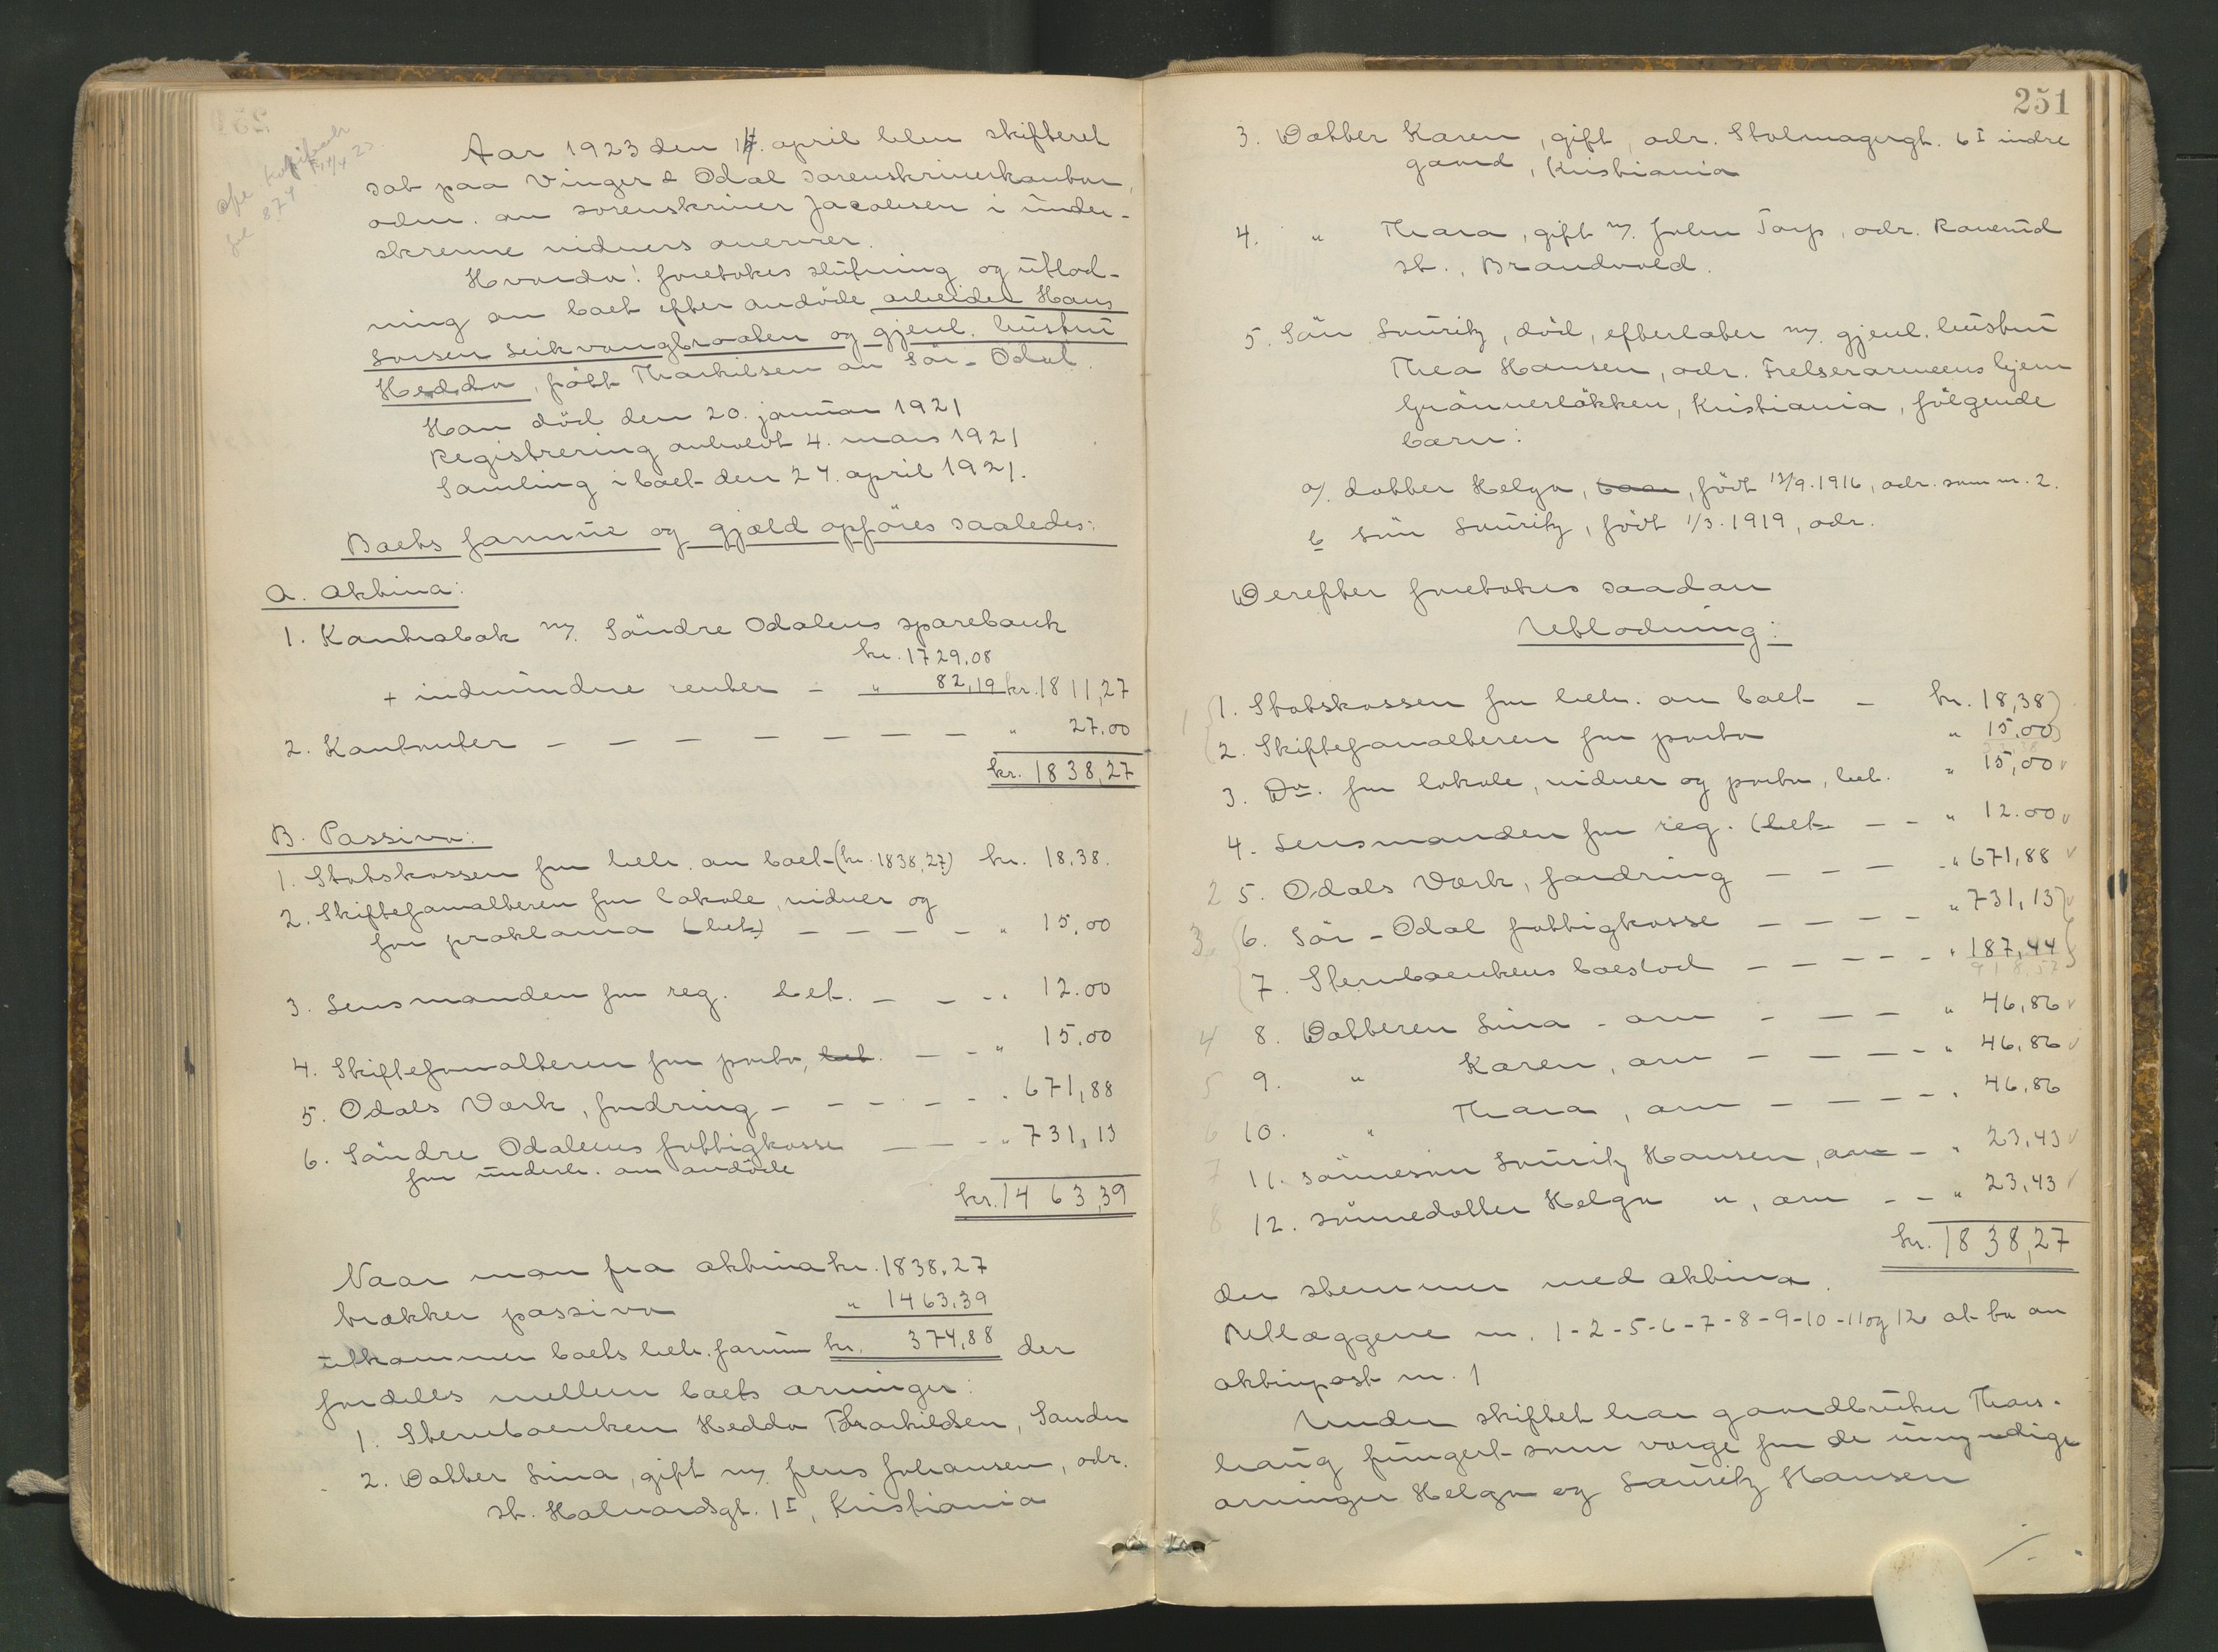 Aar 1923 den 14. april blev skifteret
sat paa Vinger & Odal sorenskriverkontor,
adm. av sorenskriver Jacobsen i under-
skrevne vidners overvær.
Hvorda! foretokes slutning og utlod-
ning av boet efter avdöde arbeider Hans
Larsen Leikvangbraaten og gjenl. hustru
Hedda, født Thorkildsen av Sör-Odal.
Han död den 20. januar 1921
Registrering avholdt 4. mars 1921
Samling i boet den 27. april 1921.
Boets formue og gjæld opföres saaledes:
A. Aktiva:
1. Kontrabok m/. Söndre Odalens sparebank
kr. 1729,08
+ indvundne renter - " 82,19 kr. 1811,27
2. Kontanter - - - - - - - - " 27.00
kr. 1838,27
B. Passiva:
1. Statskassen for beh. av boet (kr. 1838,27) kr. 18,38.
2. Skifteforvalteren for lokale, vidner og
for proklama (bet.) - - - - - " 15,00
3. Lensmanden for reg. bet. - - - " 12.00
4. Skifteforvalteren for porto, bet. - - " 15.00
5. Odals Værk, fordring - - - - - " 671,88
6. Söndre Odalens fattigkasse - - - " 731,13
for underh. av avdöde
kr. 1463,39
Naar man fra aktiva kr. 1838,27
trækker passiva " 1463,39
utkommer boets beh. formue kr. 374,88 der
fordeles mellem boets arvinger:
1. Stervboenken Hedda Thorkildsen, Sander
2. Datter Lina, gift m/. Jens Johansen, adr.
St. Halvardsgt. 1 I, Kristiania
251
3. Datter Karen, gift, adr. Stolmagergt. 6 I indre
gaard, Kristiania
4. " Thora, gift m/. John Torp, adr. Roverud
st., Brandvold.
5. Sön Lauritz, död, efterlater m/. gjenl. hustru
Thea Hansen, adr. Frelserarmeens hjem
Grünnerlökken, Kristiania, fölgende
barn:
a/. datter Helga, født 12/9.1916, adr. som nr. 2.
b sön Lauritz, född 1/3.1919, adr.
Derefter foretokes saadan
Utlodning:
1. Statskassen for beh. av boet - kr. 18,38
2. Skifteforvalteren for porto " 15,00
3. Do. for lokale, vidner og porto, bet. " 15,00
4. Lensmanden for reg. (bet. - - " 12.00
5. Odals Værk, fordring - - - " 671,88
6. Sör-Odal fattigkasse - - - - " 731,13
7. Stervboenkens boeslod - - - - " 187,44
8. Datteren Lina - arv - - - " 46,86
9. " Karen, arv - - - - " 46,86
10. " Thora, arv - - - - " 46,86
11. sönnesön Lauritz Hansen, arv - " 23,43
12. sönnedatter Helga ", arv - - " 23,43
kr. 1838,27
der stemmer med aktiva.
Utlæggene nr. 1-2-5-6-7-8-9-10-11 og 12 at ta av
aktivpost nr. 1
Under skiftet har gaardbruker Thors-
haug fungert som værge for de umyndige
arvinger Helga og Lauritz Hansen
./.